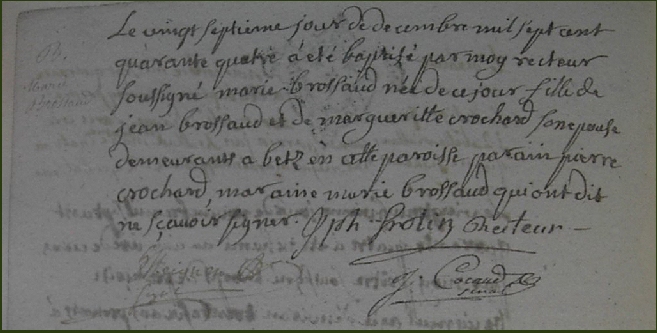 Le vingt septieme jour de decembre mil sept cent
quarante quatre a été baptizé par moy recteur
soussigné marie brossaud née de ce jour fille de
jean brossaud et de margueritte crochard son epouse
demeurants a betz en cette paroisse parain pierre
crochard, maraine marie brossaud qui ont dit
ne sçavoir signer. Jph. recteur
B.
Marie
Brossaud